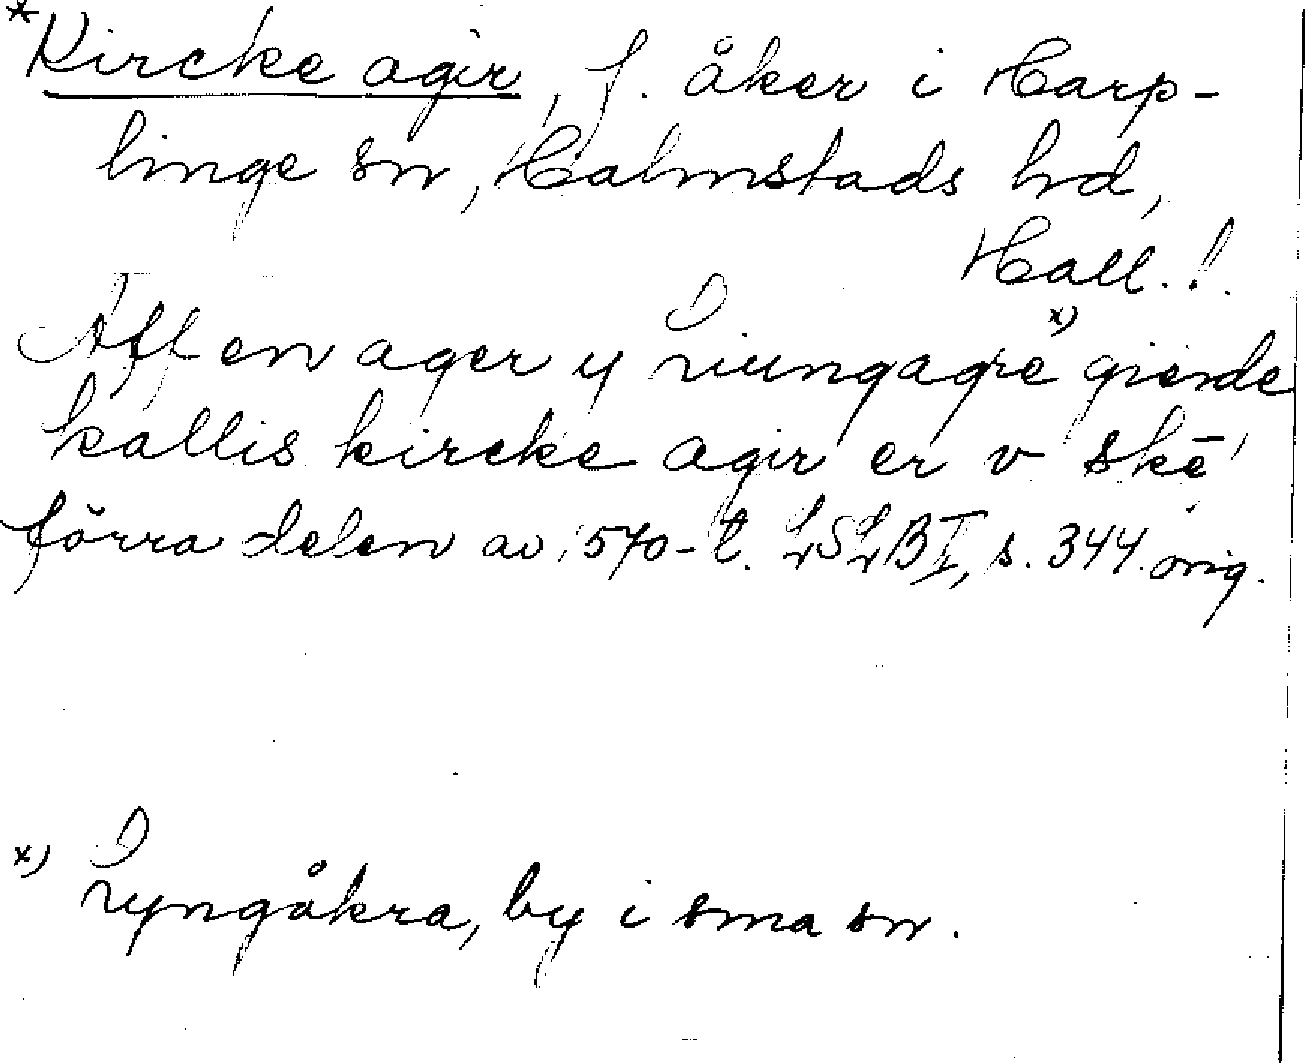 *Kircke agir, f. åker i Harp-
linge sn, Halmstads hd,
Hall.!
Aff en ager y Liungagre x) gierde
kallis kircke agir er v skē
förra delen av 1570-t. LSLB I, s. 344 orig.
x) Lyngåkra, by i sma sn.